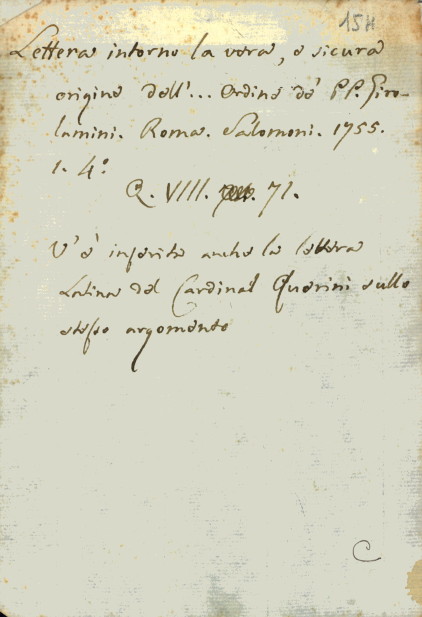 15H
Lettera intorno la vera, e sicura
origine dell'... Ordine de' PP. Giro-
lamini. Roma. Salomoni. 1755.
1. 4.º
Q. VIII. 71.
V'è inserita anche la lettera
Latina del Cardinal Querini sullo
stesso argomento
C